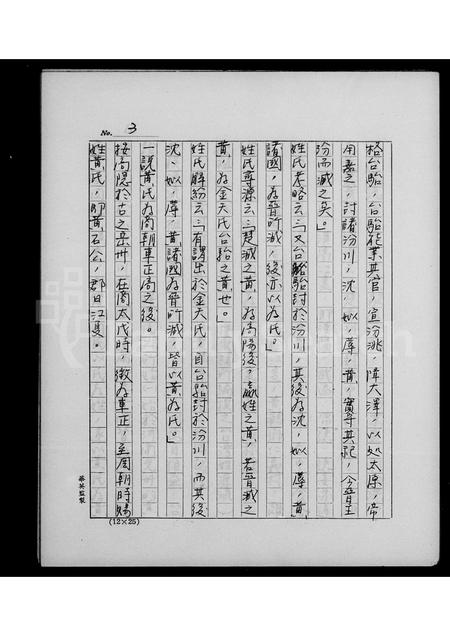 No. 3
格台駘,台駘能業其官,宣汾洮,障大澤,以処太原,帝
用嘉之,討諸汾川,沈、姒、蓐、黄,實守其祀,今晋主
汾而滅之矣。」
姓氏考略云:「又台駘封於汾川,其後為沈、姒、蓐、黄
諸國,為晉所滅,後亦以為氏。」
姓氏尋源云:「楚滅之黄,為高陽後,嬴姓之黄,若晉滅之
黄,為金天氏台駘之黄也。」
姓氏辯紛云:「有謂出於金天氏,自台駘封於汾川,而其後
沈、姒、蓐、黄諸國為晉所滅,皆以黄為氏。」
一説黄氏為商朝車正高之後。
按高隱於古之
州,在商太戊時,徵為車正,至周朝時賜
姓黄氏,即黄石公,郡曰江夏。
(12×25)